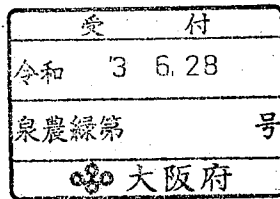 受付
令和 '3 6.28
泉農緑第 号
大阪府